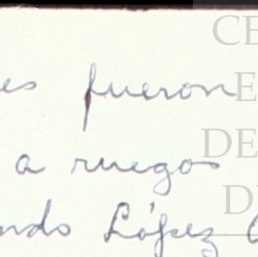 es fueron
a ruegos
ndo López
CE
E
DE
D